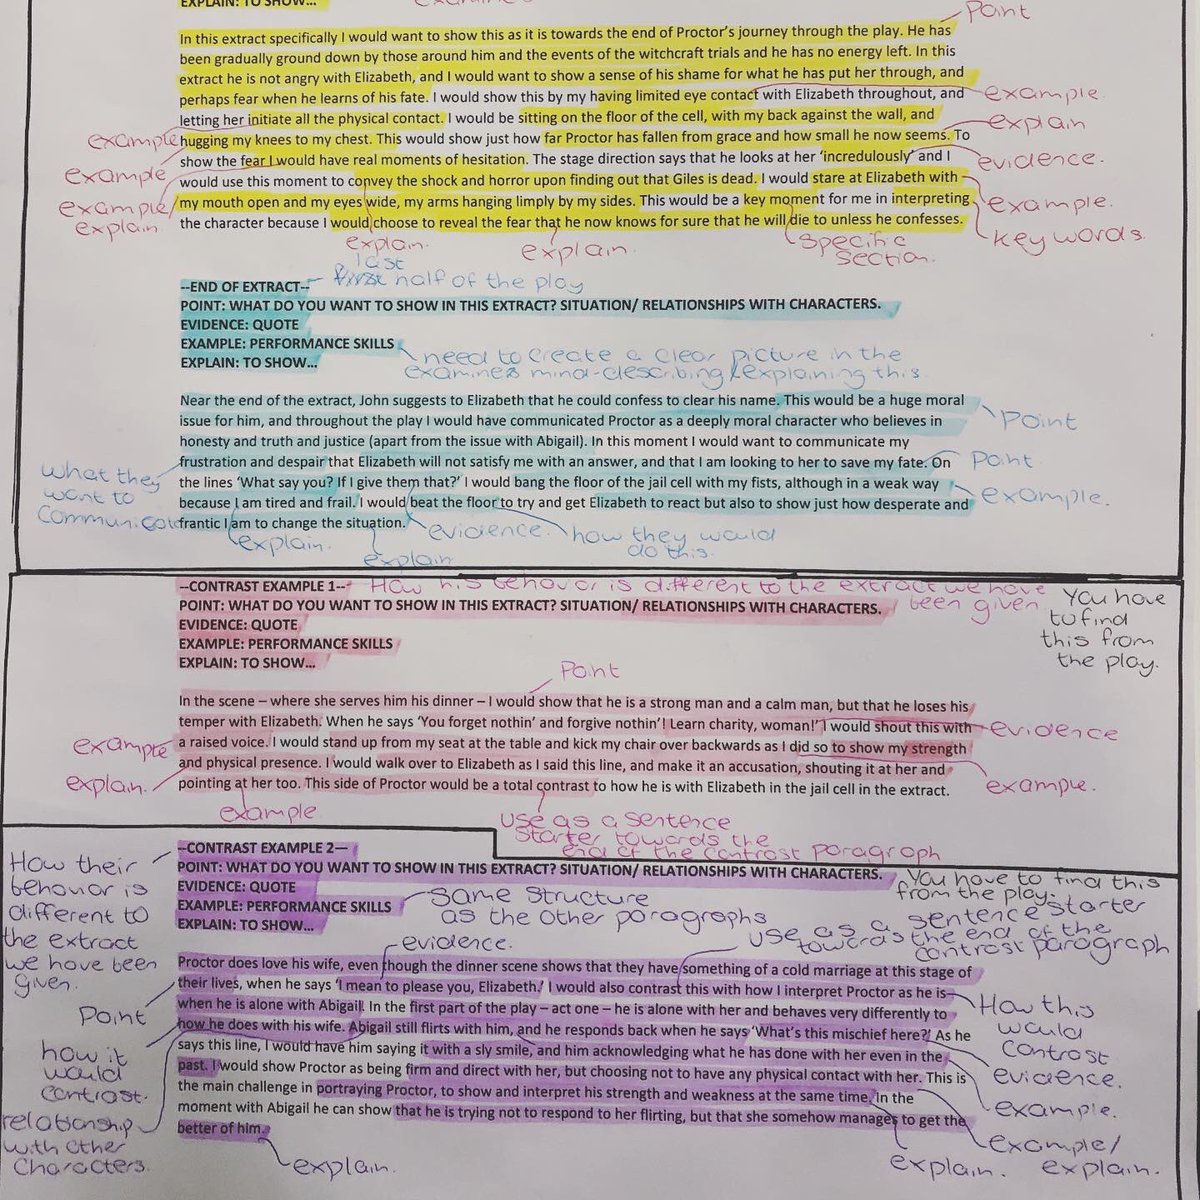 EXPLAIN: TO SHOW...
Point
In this extract specifically I would want to show this as it is towards the end of Proctor's journey through the play. He has
been gradually ground down by those around him and the events of the witchcraft trials and he has no energy left. In this
extract he is not angry with Elizabeth, and I would want to show a sense of his shame for what he has put her through, and
perhaps fear when he learns of his fate. I would show this by my having limited eye contact with Elizabeth throughout, and
example.
letting her initiate all the physical contact. I would be sitting on the floor of the cell, with my back against the wall, and
explain
example
hugging my knees to my chest. This would show just how far Proctor has fallen from grace and how small he now seems. To
show the fear I would have real moments of hesitation. The stage direction says that he looks at her 'incredulously' and I
evidence.
example
would use this moment to convey the shock and horror upon finding out that Giles is dead. I would stare at Elizabeth with
my mouth open and my eyes wide, my arms hanging limply by my sides. This would be a key moment for me in interpreting
example.
example/
explain
the character because I would choose to reveal the fear that he now knows for sure that he will die to unless he confesses.
key words.
explain.
explain.
specific
section.
--END OF EXTRACT--
last
first half of the play
POINT: WHAT DO YOU WANT TO SHOW IN THIS EXTRACT? SITUATION/ RELATIONSHIPS WITH CHARACTERS.
EVIDENCE: QUOTE
EXAMPLE: PERFORMANCE SKILLS
EXPLAIN: TO SHOW...
need to create a clear picture in the
examiners mind-describing/explaining this.
Near the end of the extract, John suggests to Elizabeth that he could confess to clear his name. This would be a huge moral
issue for him, and throughout the play I would have communicated Proctor as a deeply moral character who believes in
Point
honesty and truth and justice (apart from the issue with Abigail). In this moment I would want to communicate my
frustration and despair that Elizabeth will not satisfy me with an answer, and that I am looking to her to save my fate. On
Point
the lines 'What say you? If I give them that?' I would bang the floor of the jail cell with my fists, although in a weak way
example.
because I am tired and frail. I would beat the floor to try and get Elizabeth to react but also to show just how desperate and
frantic I am to change the situation.
what they
want to
communicate
explain.
explain
evidence.
how they would
do this.
--CONTRAST EXAMPLE 1--
How his behavor is different to the extract we have
been given
POINT: WHAT DO YOU WANT TO SHOW IN THIS EXTRACT? SITUATION/ RELATIONSHIPS WITH CHARACTERS.
EVIDENCE: QUOTE
EXAMPLE: PERFORMANCE SKILLS
EXPLAIN: TO SHOW...
You have
to find
this from
the play.
Point
In the scene – where she serves him his dinner – I would show that he is a strong man and a calm man, but that he loses his
temper with Elizabeth. When he says 'You forget nothin' and forgive nothin'! Learn charity, woman!' I would shout this with
evidence
a raised voice. I would stand up from my seat at the table and kick my chair over backwards as I did so to show my strength
example
and physical presence. I would walk over to Elizabeth as I said this line, and make it an accusation, shouting it at her and
example.
explain.
pointing at her too. This side of Proctor would be a total contrast to how he is with Elizabeth in the jail cell in the extract.
example
use as a sentence
starter towards the
end of the contrast paragraph
--CONTRAST EXAMPLE 2—
POINT: WHAT DO YOU WANT TO SHOW IN THIS EXTRACT? SITUATION/ RELATIONSHIPS WITH CHARACTERS.
EVIDENCE: QUOTE
EXAMPLE: PERFORMANCE SKILLS
EXPLAIN: TO SHOW...
How their
behavor is
different to
the extract
we have been
given.
You have to find this
from the play.
same structure
as the other paragraphs
use as a sentence starter
towards the end of the
contrast paragraph
evidence.
Proctor does love his wife, even though the dinner scene shows that they have something of a cold marriage at this stage of
their lives, when he says 'I mean to please you, Elizabeth.' I would also contrast this with how I interpret Proctor as he is
when he is alone with Abigail. In the first part of the play – act one – he is alone with her and behaves very differently to
how he does with his wife. Abigail still flirts with him, and he responds back when he says 'What's this mischief here?' As he
says this line, I would have him saying it with a sly smile, and him acknowledging what he has done with her even in the
past. I would show Proctor as being firm and direct with her, but choosing not to have any physical contact with her. This is
the main challenge in portraying Proctor, to show and interpret his strength and weakness at the same time. In the
moment with Abigail he can show that he is trying not to respond to her flirting, but that she somehow manages to get the
better of him.
Point
how it
would
contrast.
relationship
with other
characters.
How this
would
contrast
evidence.
example.
example/
explain.
explain.
explain.